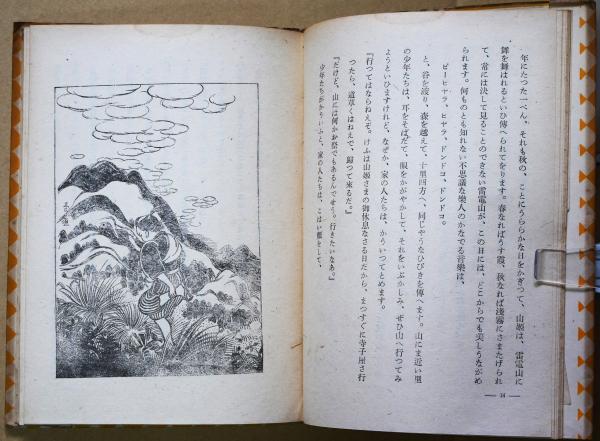 年にたつた一ぺん、それも秋の、ことにうららかな日をかぎつて、山姬は、雷電山に
舞を舞はれるといひ傳へられてをります。春なればうす霞、秋なれば淺霧にさまたげられ
て、常には決して見ることのできない雷電山が、この日には、どこからでも美しうながめ
られます。何ものとも知れない不思議な樂人のかなでる音樂は、
ピーヒヤラ、ヒヤラ、ドンドコ、ドンドコ。
と、谷を渡り、森を越えて、十里四方へ、同じやうなひびきを傳へます。山にま近い里
の少年たちは、耳をそばだて、眼をかがやかして、それをいぶかしみ、ぜひ山へ行つてみ
ようといひますけれど、なぜか、家の人たちは、かういつてとめます。
『行つてはならねえぞ。けふは山姬さまの御休息なさる日だから、まつすぐに寺子屋さ行
つたら、道草くはねえで、歸つて來るだ。』
『だけど、山には何かお祭でもあるんでせう。行きたいなあ。』
少年たちがかういふと、家の人たちは、こはい顏をして、
— 34 —